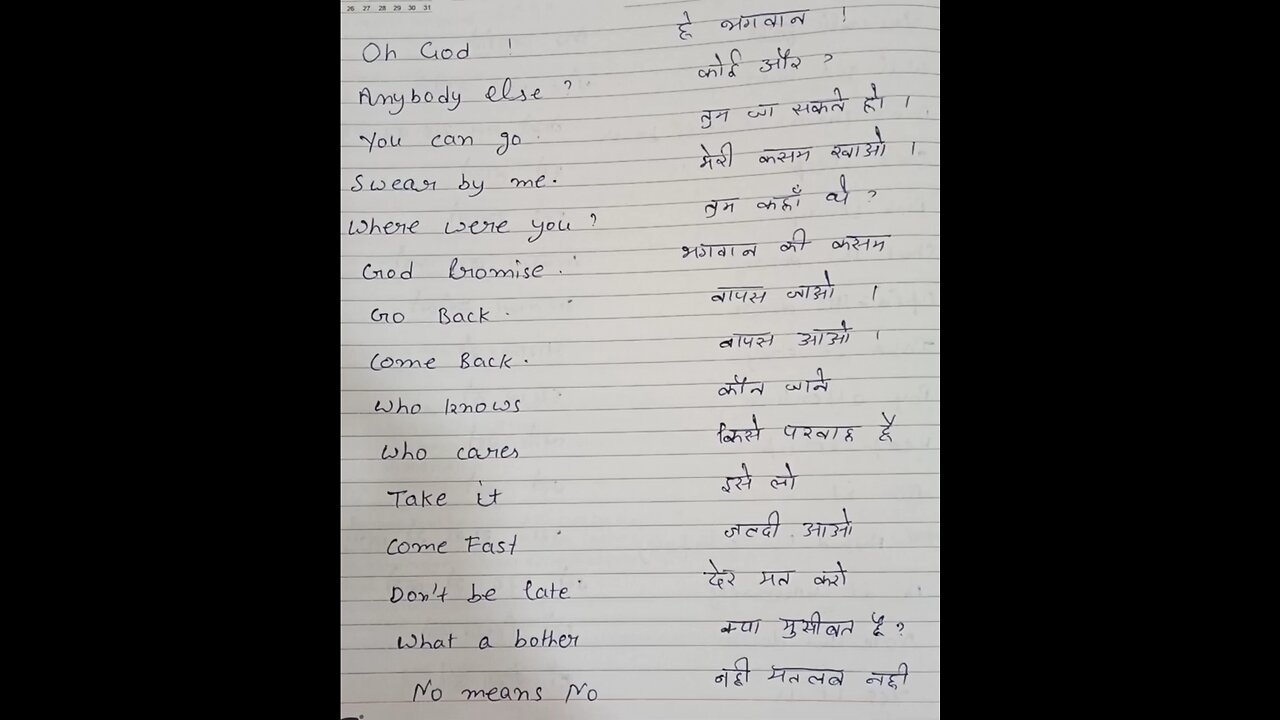 26 27 28 29 30 31
Oh God ! हे भगवान !
Anybody else ? कोई और ?
You can go. तुम जा सकते हो ।
Swear by me. मेरी कसम खाओ ।
Where were you ? तुम कहाँ थे ?
God Promise. भगवान की कसम
Go Back. वापस जाओ ।
Come Back. वापस आओ ।
Who knows कौन जाने
Who cares किसे परवाह है
Take it इसे लो
Come Fast जल्दी आओ
Don't be late देर मत करो
What a bother क्या मुसीबत है ?
No means No नही मतलब नही